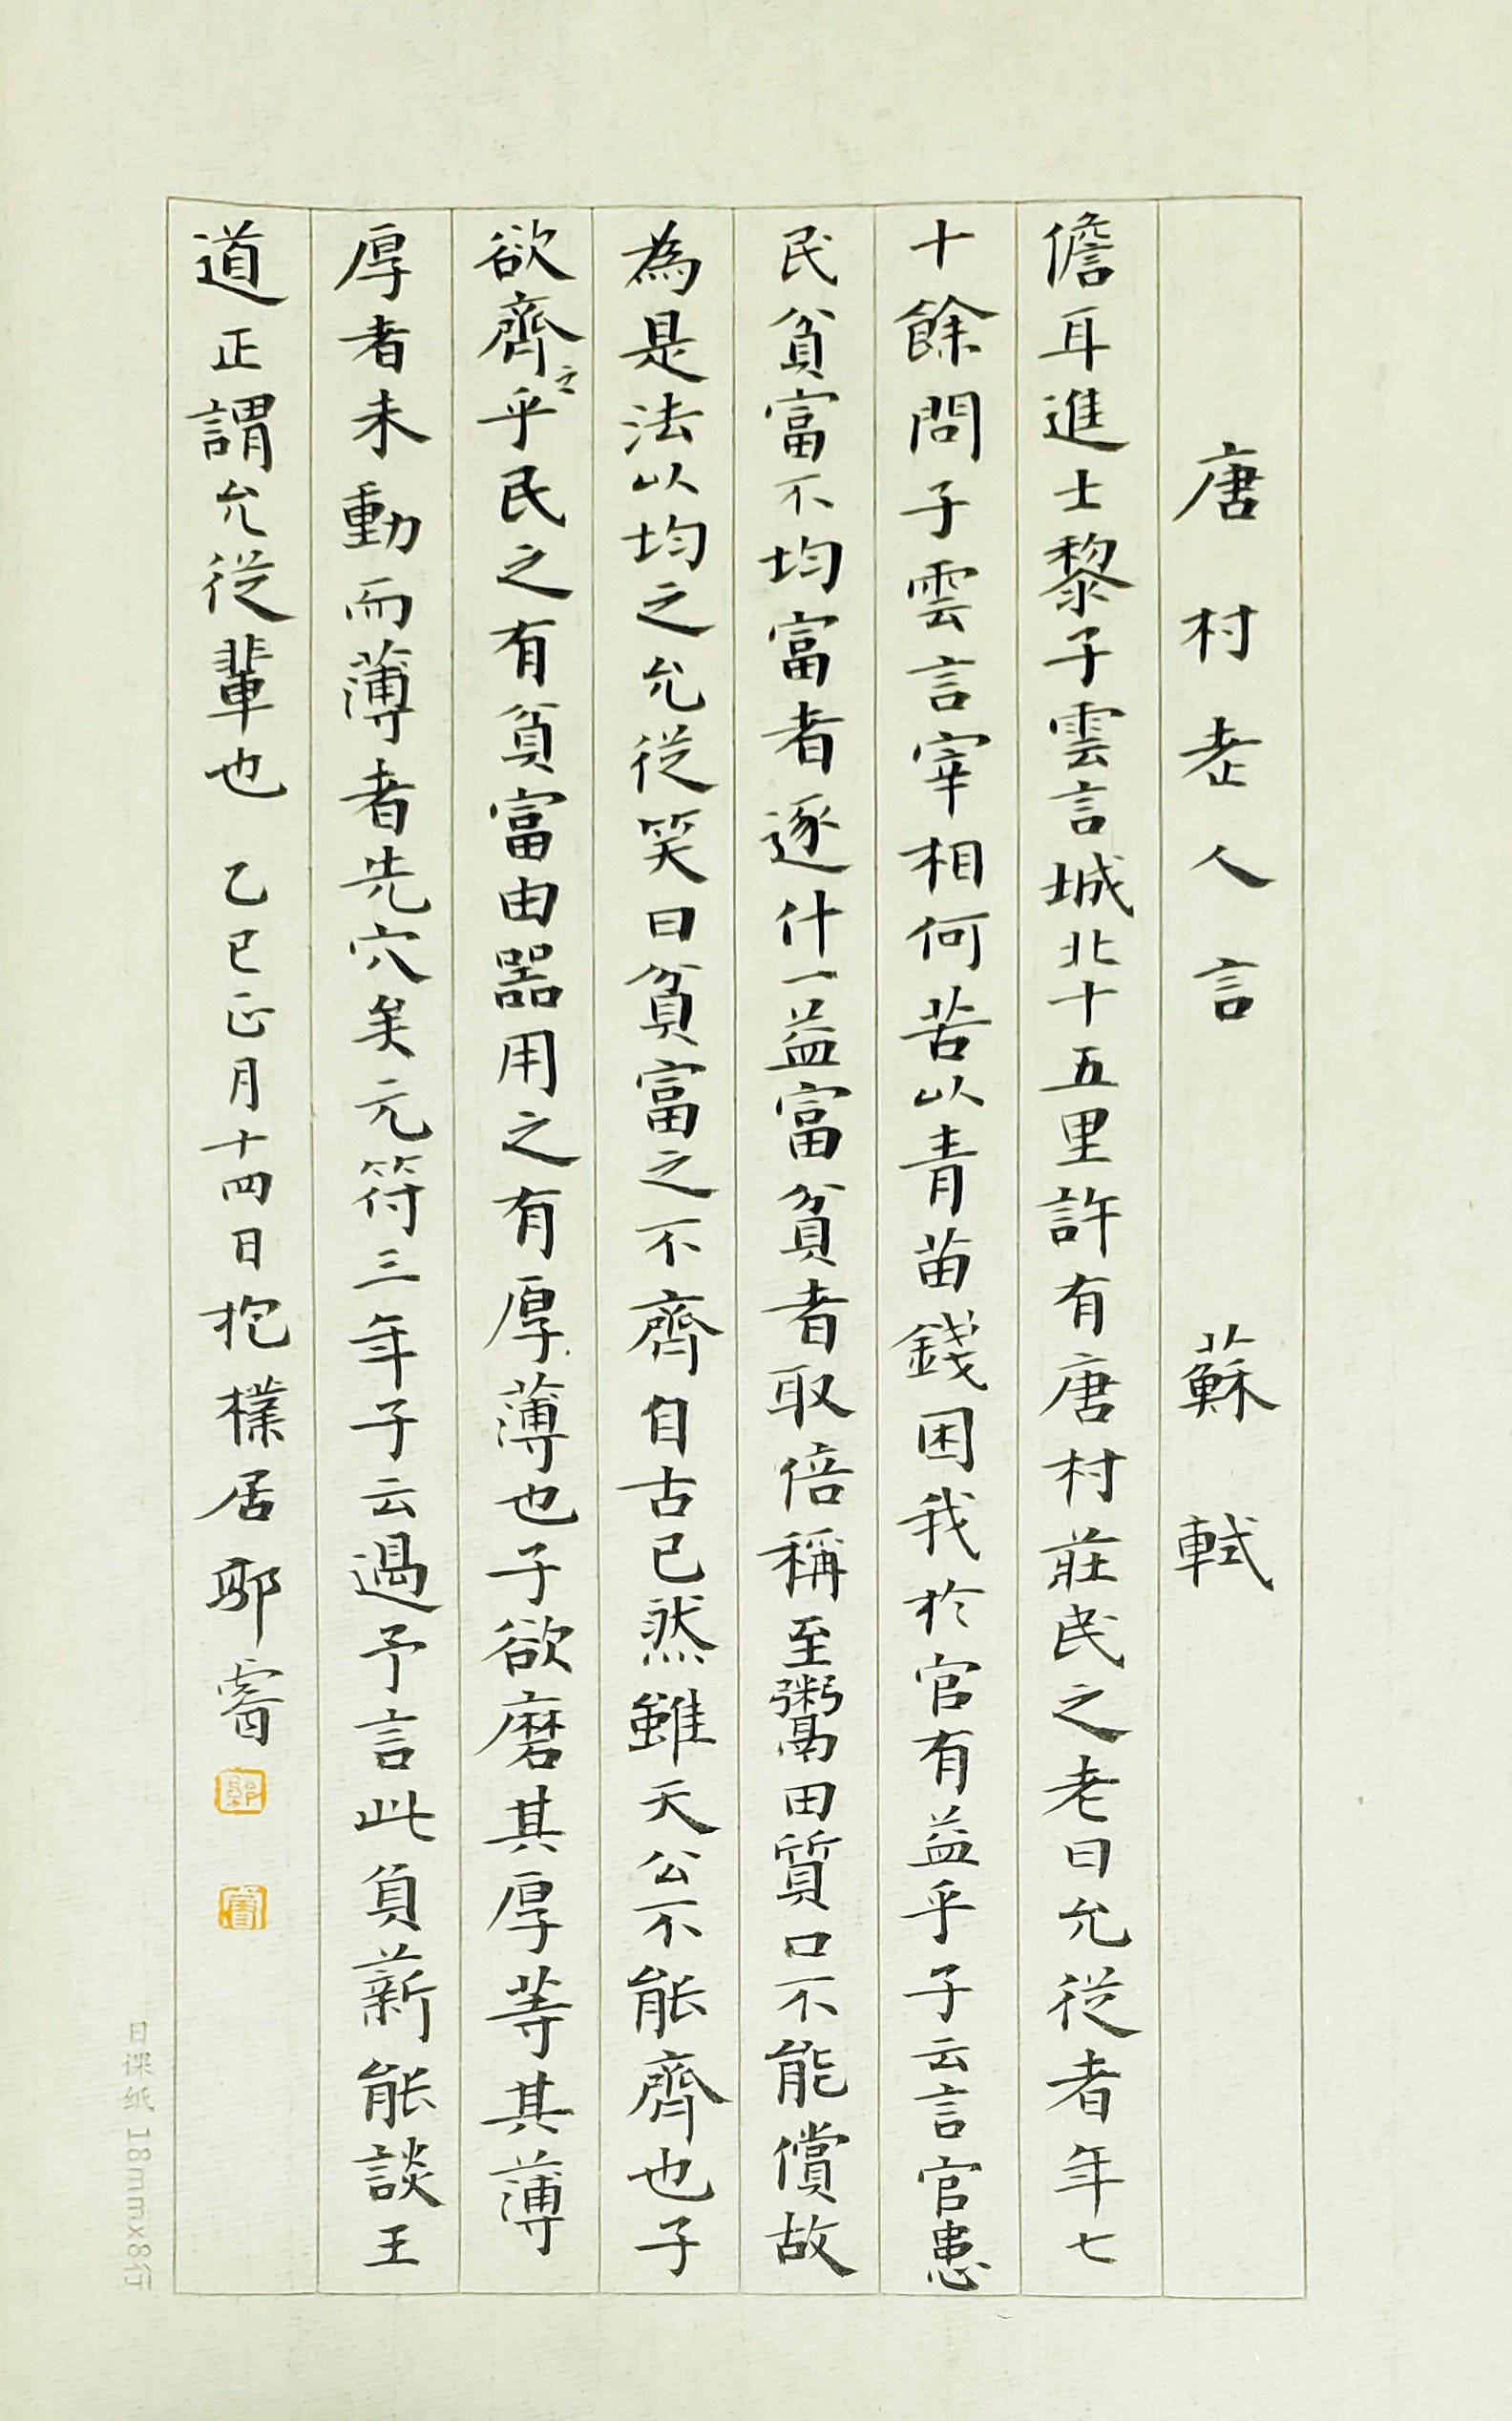 唐村老人言 蘇軾
儋耳進士黎子雲言城北十五里許有唐村莊民之老曰允從者年七
十餘問子雲言宰相何苦以青苗錢困我於官有益乎子云言官患
民貧富不均富者逐什一益富貧者取倍稱至鬻田質口不能償故
為是法以均之允從笑曰貧富之不齊自古已然雖天公不能齊也子
欲齊之乎民之有貧富由器用之有厚薄也子欲磨其厚等其薄
厚者未動而薄者先穴矣元符三年子云過予言此負薪能談王
道正謂允從輩也 乙巳正月十四日抱樸居邪睿
日课纸 18mmx8行